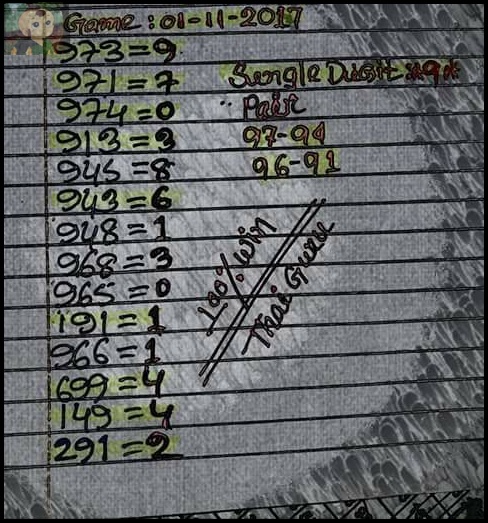 Game: 01-11-2017
973=9
971=7
974=0
913=3
945=8
943=6
948=1
968=3
965=0
191=1
966=1
699=4
149=4
291=2
Single Digit *9*
Pair
97-94
96-91
100% Win
Thai Guru